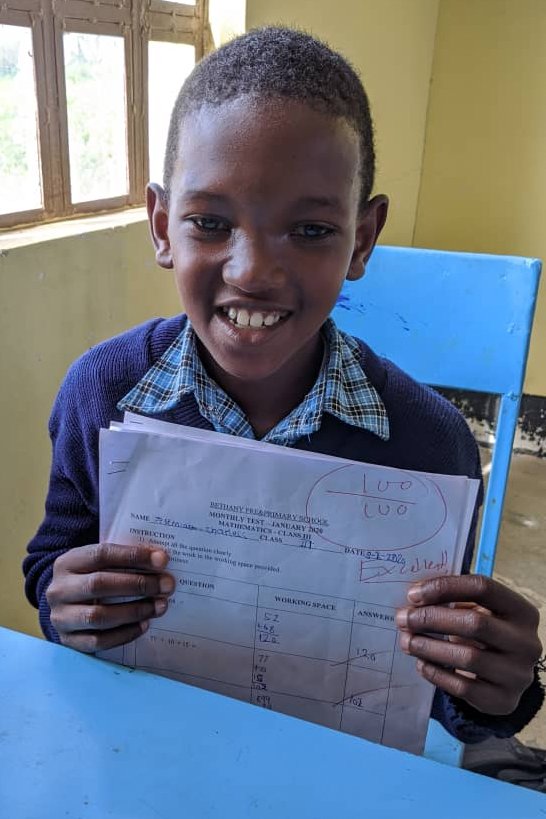 100
100
BETHANY PRE&PRIMARY SCHOOL
MONTHLY TEST - JANUARY 2020
MATHEMATICS - CLASS III
NAME CLASS III DATE
Excellent
INSTRUCTION
1) Attempt all the question clearly
the work in the working space provided
QUESTION WORKING SPACE ANSWERS
52
+68
120 120
77 + 10 + 15 =
77
+10
15
102 102